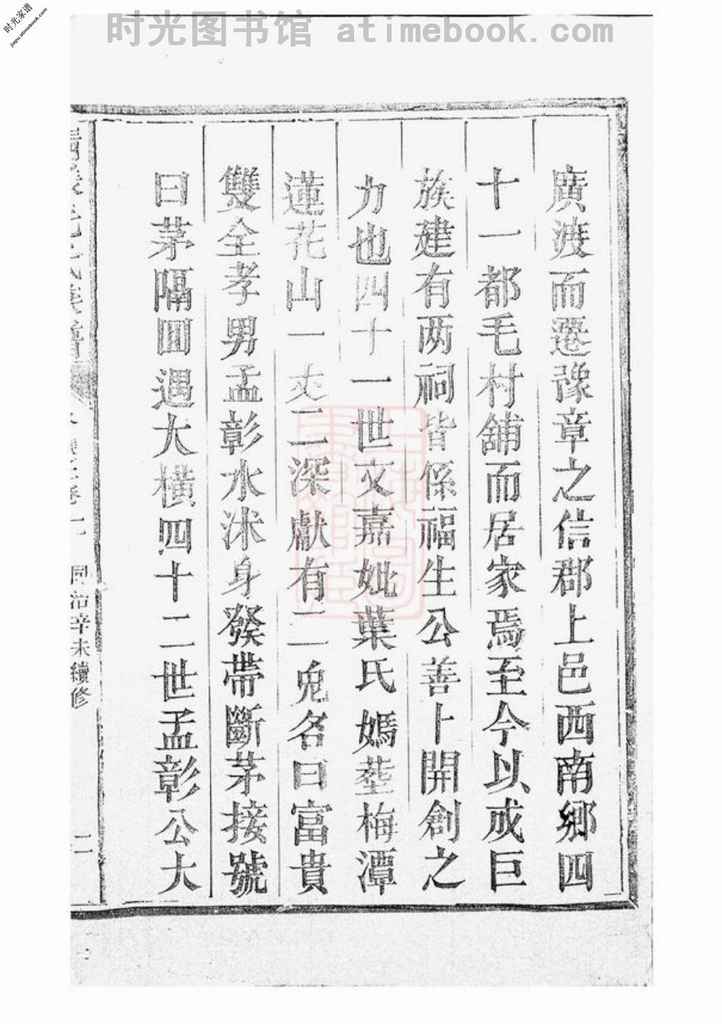 时光图书馆 atimebook.com
时光家谱
廣渡而遷豫章之信郡上邑西南鄉四
十一都毛村舖而居家焉至今以成巨
族建有两祠皆係福生公善卜開創之
力也四十一世文嘉妣葉氏媽塟梅潭
蓮花山一丈二深獻有二鬼名曰富貴
雙全孝男孟彰水沭身發帶斷茅接號
曰茅隔圓遇大橫四十二世孟彰公大
毛氏族譜
同治辛未續修
二